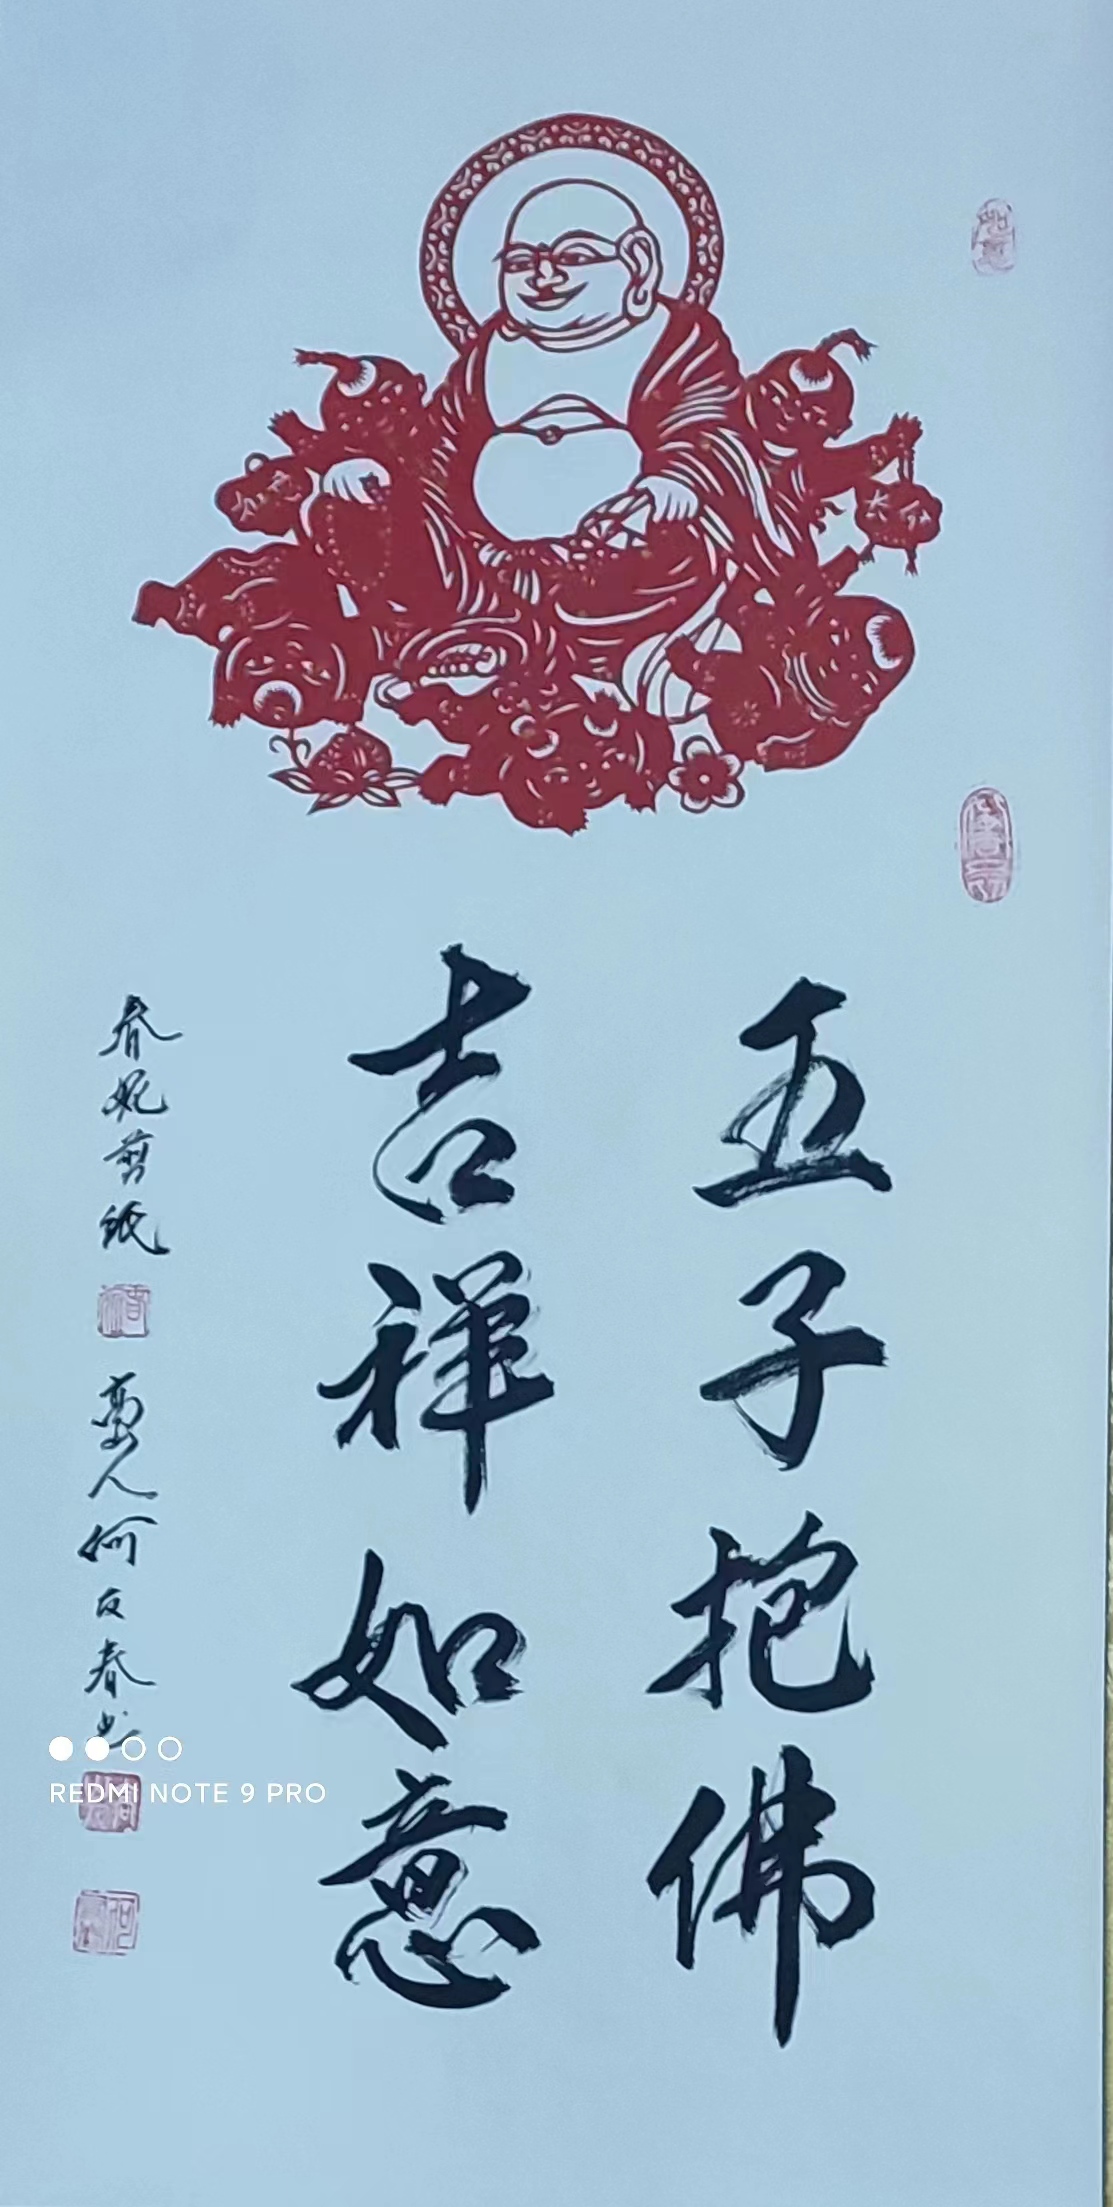 五子抱佛
吉祥如意
春妮剪纸
人何友春书
REDMI NOTE 9 PRO